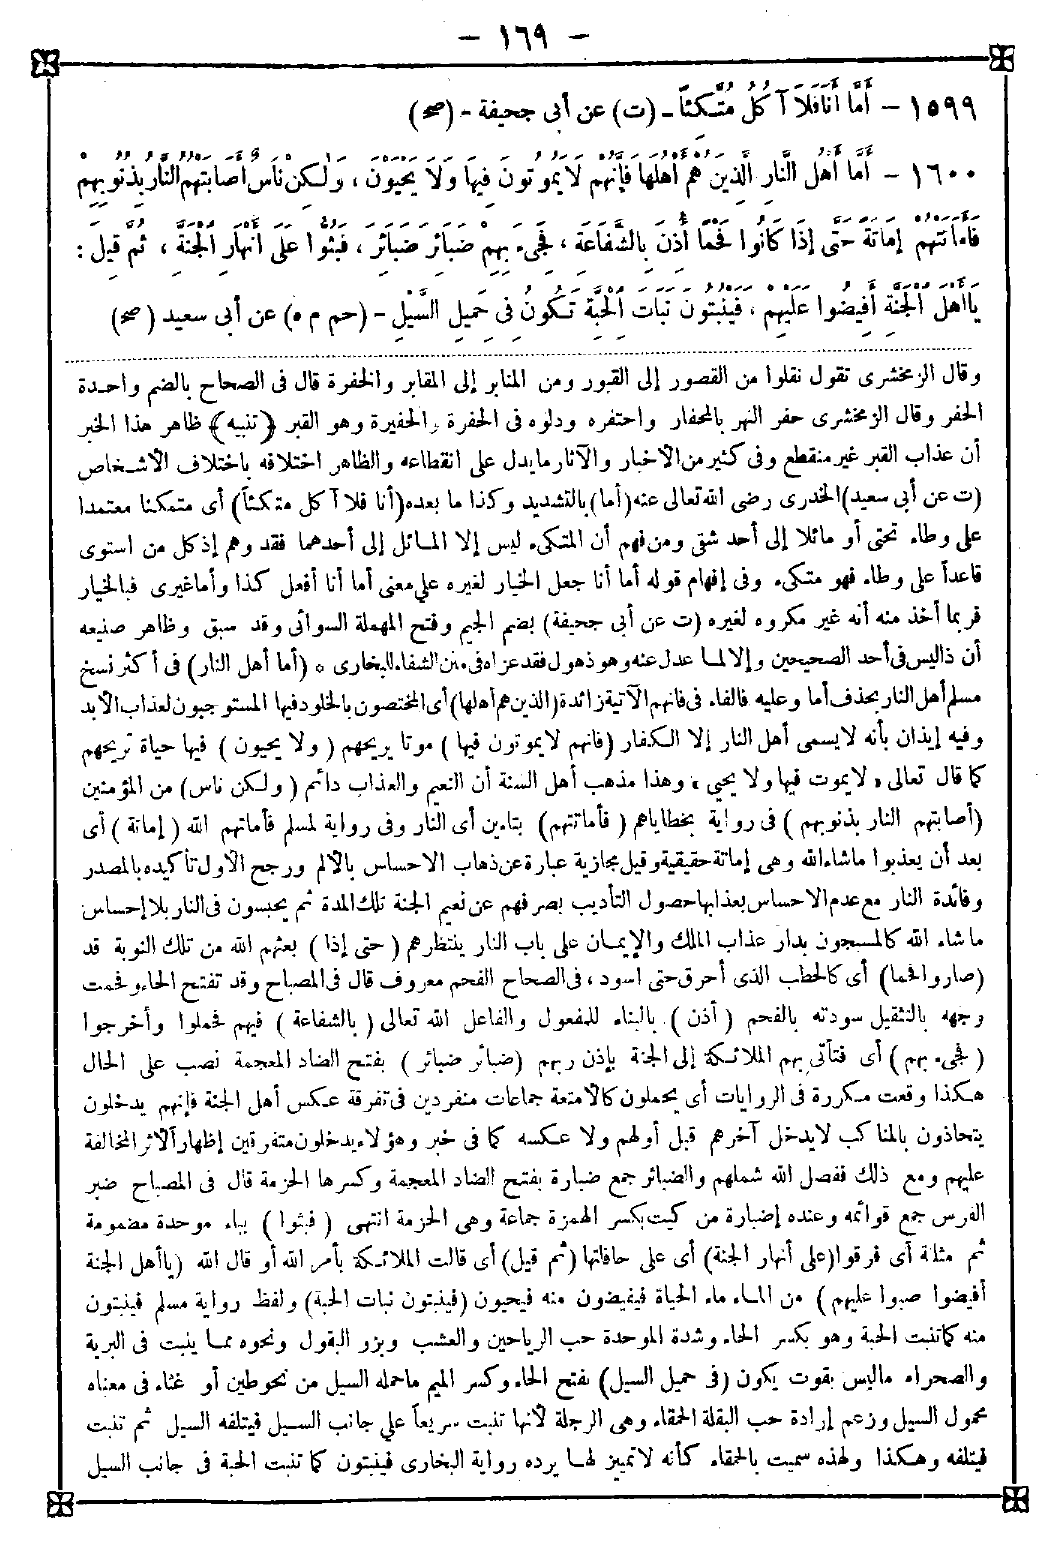 - ١٦٩ -
١٥٩٩ - أَمَّا أَنَا فَلَا آكُلُ مُتَّكِئًا - (ت) عن أبى جحيفة - (صح)
١٦٠٠ - أَمَّا أَهْلُ النَّارِ الَّذِينَ هُمْ أَهْلُهَا فَإِنَّهُمْ لَا يَمُوتُونَ فِيهَا وَلَا يَحْيَوْنَ ، وَلٰكِنْ نَاسٌ أَصَابَتْهُمُ النَّارُ بِذُنُوبِهِمْ
فَأَمَاتَتْهُمْ إِمَاتَةً حَتَّى إِذَا كَانُوا فَحْمًا أُذِنَ بِالشَّفَاعَةِ ، فَجِىءَ بِهِمْ ضَبَائِرَ ضَبَائِرَ ، فَبُثُّوا عَلَى أَنْهَارِ الْجَنَّةِ ، ثُمَّ قِيلَ :
يَا أَهْلَ الْجَنَّةِ أَفِيضُوا عَلَيْهِمْ ، فَيَنْبُتُونَ نَبَاتَ الْحَبَّةِ تَكُونُ فِى حَمِيلِ السَّيْلِ - (حم م ه) عن أبى سعيد (صح)
وقال الزمخشرى تقول نقلوا من القصور إلى القبور ومن المنابر إلى المقابر والحفرة قال فى الصحاح بالضم واحدة
الحفر وقال الزمخشرى حفر النهر بالمحفار واحتفره ودلوه فى الحفرة والحفيرة وهو القبر ﴿تنبيه﴾ ظاهر هذا الخبر
أن عذاب القبر غير منقطع وفى كثير من الأخبار والآثار ما يدل على انقطاعه والظاهر اختلافه باختلاف الأشخاص
(ت عن أبى سعيد) الخدرى رضى الله تعالى عنه (أما) بالتشديد وكذا ما بعده (أنا فلا آكل متكئاً) أى متمكنا معتمدا
على وطاء تحتى أو مائلا إلى أحد شقى ومن فهم أن المتكىء ليس إلا المائل إلى أحدهما فقد وهم إذ كل من استوى
قاعداً على وطاء فهو متكىء وفى إفهام قوله أما أنا جعل الخيار لغيره على معنى أما أنا أفعل كذا وأما غيرى فبالخيار
فربما أخذ منه أنه غير مكروه لغيره (ت عن أبى جحيفة) بضم الجيم وفتح المهملة السوائى وقد سبق وظاهر صنيعه
أن ذا ليس فى أحد الصحيحين وإلا لما عدل عنه وهو ذهول فقد عزاه فى متن الشفاء للبخارى ٥ (أما أهل النار) فى أكثر نسخ
مسلم أهل النار بحذف أما وعليه فالفاء فى فانهم الآتية زائدة (الذين هم أهلها) أى المختصون بالخلود فيها المستوجبون لعذاب الأبد
وفيه إيذان بأنه لا يسمى أهل النار إلا الكفار (فانهم لا يموتون فيها) موتا يريحهم (ولا يحيون) فيها حياة تريحهم
كما قال تعالى « لا يموت فيها ولا يحيى » وهذا مذهب أهل السنة أن النعيم والعذاب دائم (ولكن ناس) من المؤمنين
(أصابتهم النار بذنوبهم) فى رواية بخطاياهم (فأماتتهم) بتاءين أى النار وفى رواية لمسلم فأماتهم الله (إماتة) أى
بعد أن يعذبوا ما شاء الله وهى إماتة حقيقية وقيل مجازية عبارة عن ذهاب الاحساس بالألم ورجح الأول تأكيده بالمصدر
وفائدة النار مع عدم الاحساس بعذابها حصول التأديب بصرفهم عن نعيم الجنة تلك المدة ثم يحبسون فى النار بلا إحساس
ما شاء الله كالمسجون بدار عذاب الملك والإيمان على باب النار ينتظرهم (حتى إذا) بعثهم الله من تلك النوبة قد
(صاروا فحما) أى كالحطب الذى أحرق حتى اسود ، فى الصحاح الفحم معروف قال فى المصباح وقد تفتح الحاء وفحمت
وجهه بالتثقيل سودته بالفحم (أذن) بالبناء للمفعول والفاعل الله تعالى (بالشفاعة) فيهم فحملوا وأخرجوا
(فجىء بهم) أى فتأتى بهم الملائكة إلى الجنة بإذن ربهم (ضبائر ضبائر) بفتح الضاد المعجمة نصب على الحال
هكذا وقعت مكررة فى الروايات أى يحملون كالأمتعة جماعات منفردين فى تفرقة عكس أهل الجنة فإنهم يدخلون
يتحاذون بالمناكب لا يدخل آخرهم قبل أولهم ولا عكسه كما فى خبر وهؤلاء يدخلون متفرقين إظهار ألأثر المخالفة
عليهم ومع ذلك ففصل الله شملهم والضبائر جمع ضبارة بفتح الضاد المعجمة وكسرها الحزمة قال فى المصباح ضبر
الفرس جمع قوائمه وعنده إضبارة من كتب بكسر الهمزة جماعة وهى الحزمة انتهى (فبثوا) بباء موحدة مضمومة
ثم مثلثة أى فرقوا (على أنهار الجنة) أى على حافاتها (ثم قيل) أى قالت الملائكة بأمر الله أو قال الله (يا أهل الجنة
أفيضوا صبوا عليهم) من الماء ماء الحياة فيفيضون منه فيحيون (فينبتون نبات الحبة) ولفظ رواية مسلم فينبتون
منه كما تنبت الحبة وهو بكسر الحاء وشدة الموحدة حب الرياحين والعشب وبزر البقول ونحوه مما ينبت فى البرية
والصحراء مما ليس بقوت يكون (فى حميل السيل) بفتح الحاء وكسر الميم ما حمله السيل من نحو طين أو غثاء فى معناه
محمول السيل وزعم إرادة حب البقلة الحمقاء وهى الرجلة لأنها تنبت سريعاً على جانب السيل فيتلفه السيل ثم تنبت
فيتلفه وهكذا ولهذه سميت بالحمقاء كأنه لا تمييز لها يرده رواية البخارى فينبتون كما تنبت الحبة فى جانب السيل